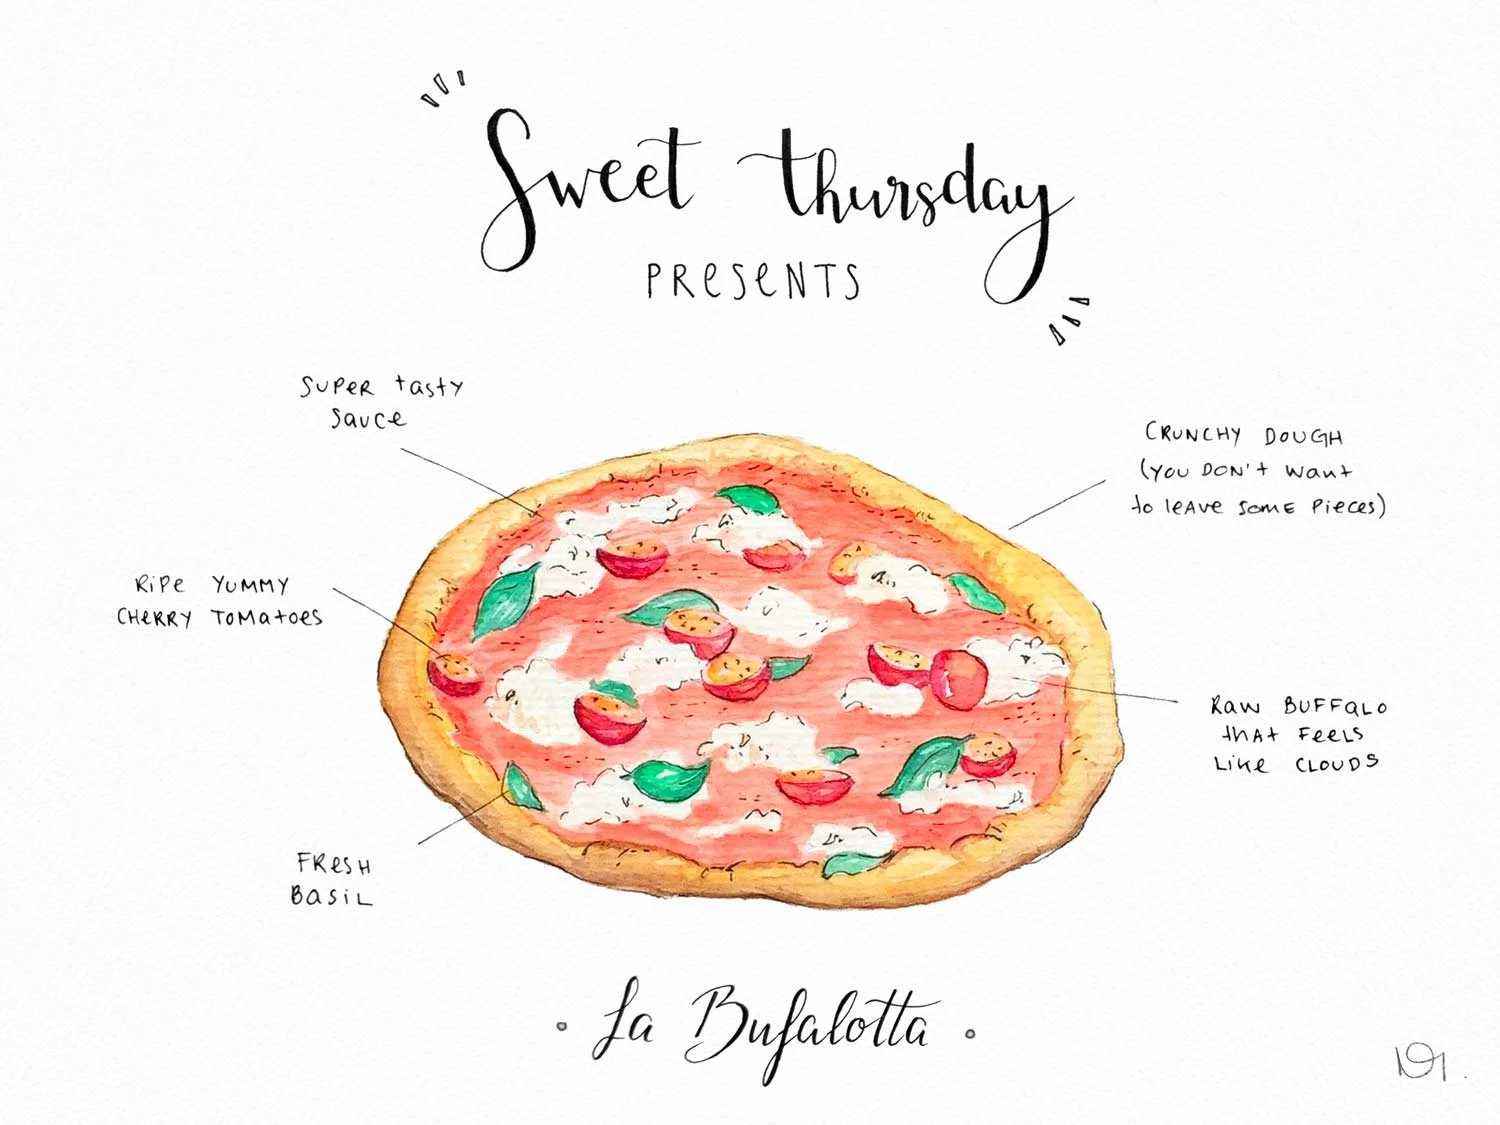 Sweet thursday
PRESENTS
SUPER tasty
sauce
CRUNCHY DOUGH
(YOU DON't want
to leave some pieces)
Ripe YUMMY
CHERRY TOMatoes
RAW BUFFALO
that Feels
Like CLOUDS
FRESH
BASIL
• La Bufalotta •